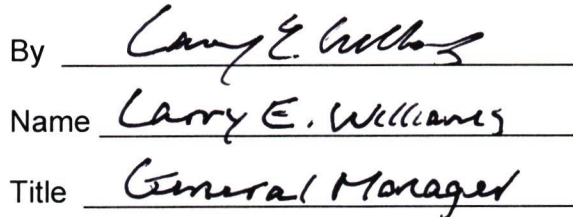 By Larry E. Williams
Name Larry E. Williams
Title General Manager